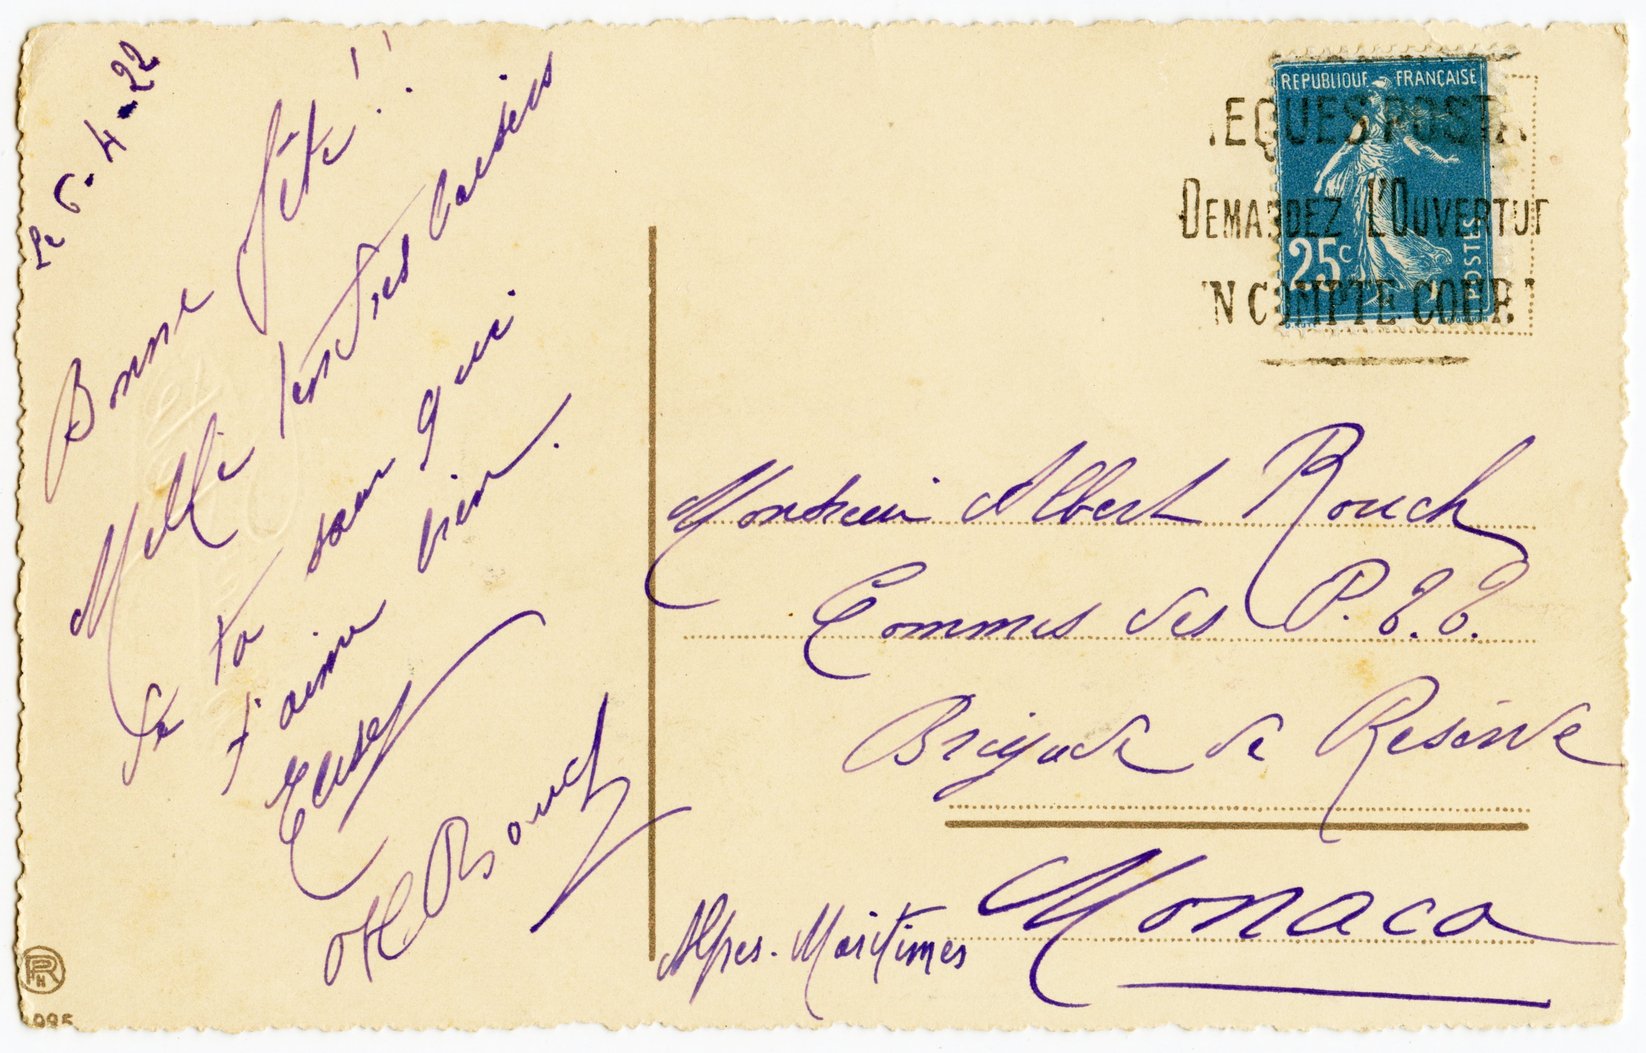 Le 6-4-22
Bonne fête!!
Mille tendres baisers
de ta sœur qui
t'aime bien.
Rouch
REPUBLIQUE FRANÇAISE
25c
POSTES
EQUES POSTA
DEMANDEZ L'OUVERTUR
N COMPTE COUR
Monsieur Albert Rouch
Commis des P.T.T.
Brigade de Réserve
Monaco
Alpes-Maritimes